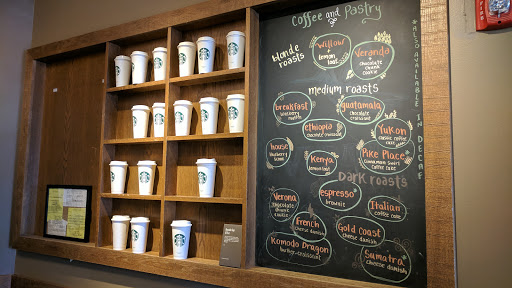 Coffee and Pastry
blonde roasts
Willow
+
lemon loaf
Veranda
+
chocolate chunk cookie
*ALSO AVAILABLE IN DECAF
medium roasts
breakfast
blueberry muffin
guatemala
chocolate croissant
ethiopia
chocolate croissant
Yukon
classic coffee cake
house
blueberry scone
Kenya
lemon loaf
Pike Place
cinnamon swirl coffee cake
Dark roasts
Verona
chocolate chunk cookie
espresso
brownie
Italian
coffee cake
French
cheese danish
Gold Coast
cheese danish
Komodo Dragon
butter croissant
Sumatra
cheese danish